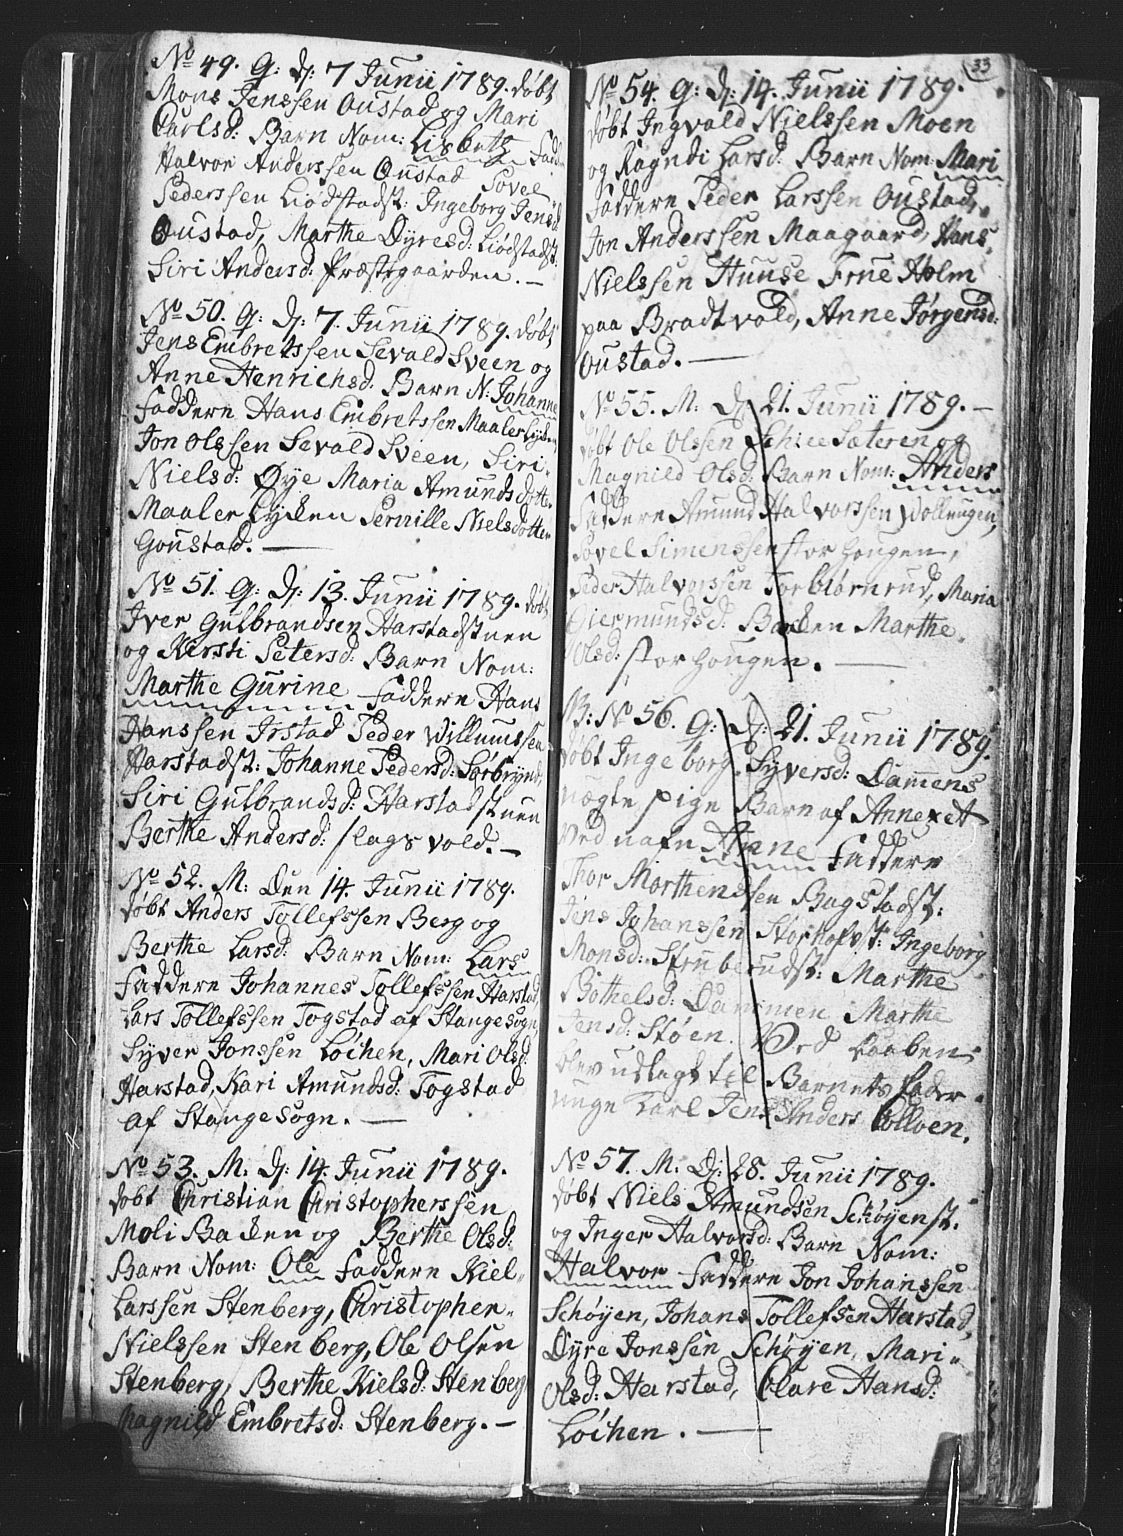 No 49. G: D: 7 Junii 1789. døbt
Mons Jenssen Oustad og Mari
Carlsd: Barn Nom: Lisbeth Fadd
Halvor Anderssen Oustad Sovel
Pederssen Liødstadst: Ingeborg Jensd
Oustad, Marthe Dyresd: Liødstadst:
Siri Andersd: Præstegaarden. —
No 50. G: D: 7. Junii 1789. døbt
Jens Embretssen Sevald Sveen og
Anne Henrichsd: Barn N: Johanne
Faddere Hans Embretssen Maalerlyken
Jon Olssen Sevald Sveen, Siri
Nielsd: Øye Maria Amundsdotter
Maaler Lyken Pernille Nielsdotter
Goustad. —
No 51. G: D: 13. Junii 1789. døbt
Iver Gulbrandsen Harstadstuen
og Kirsti Petersd: Barn Nom:
Marthe Gurine Faddere Hans
Hanssen Irstad Peder Willumssen
Harstadst: Johanne Pedersd: Sørbrynd
Siri Gulbrandsd: Harstadstuen
Berthe Andersd: slagsvold. —
No 52. M: Den 14. Junii 1789.
døbt Anders Tollefssen Berg og
Berthe Larsd: Barn Nom: Lars
Faddere Johannes Tollefssen Harstad,
Lars Tollefssen Togstad af Stangesogn,
Syver Jonssen Løchen, Mari Olsd:
Harstad, Kari Amundsd: Togstad
af Stangesogn. —
No 53. M: D: 14. Junii 1789.
døbt Christian Christopherssen
Moli Bakken og Berthe Olsd:
Barn Nom: Ole Faddere Kiel
Larssen Stenberg, Christopher
Nielssen Stenberg, Ole Olsen
Stenberg, Berthe Kielsd: Stenberg
Magnild Embretsd: Stenberg. —
33
No 54. G: D: 14. Junii 1789.
døbt Ingvald Nielssen Moen
og Ragndi Larsd: Barn Nom: Mari
Faddere Peder Larssen Oustad,
Jon Anderssen Maagaard, Hans
Nielssen Huuse Frue Holm
paa Bradtvold, Anne Jørgensd:
Oustad. —
No 55. M: D: 21. Junii 1789. —
døbt Ole Olssen Sæteren og
Magnild Olsd: Barn Nom: Anders
Faddere Amund Halvorssen Wollengen,
Sovel Simenssen storhougen,
Peder Halvorssen Torbiørnrud, Maria
Giermundsd: Bakken Marthe
Olsd: storhougen. —
B: No 56. G: D: 21. Junii 1789.
døbt Ingeborg Syversd: Dammens
uægte pige Barn af Annexet
ved nafn Anne Faddere
Thor Morthenssen Bagstadst:
Jens Johanssen Storhofst: Ingeborg
Monsd: Stenberudst: Marthe
Bothelsd: Dammen Marthe
Jensd: Støen. Ved Daaben
blev udlagt til Barnets Fader
unge Karl Jens Anders Colloen.
No 57. M: D: 28. Junii 1789.
døbt Niels Amundsen Schøyenst:
og Inger Halvorsd: Barn Nom:
Halvor Faddere Jon Johanssen
Schøyen, Johans Tollefsen Harstad,
Dyre Jonssen Schøyen, Mari
Olsd: Harstad, Clare Hansd:
Løchen. —